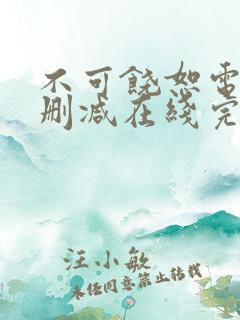 不可饶恕電
删减在綫完
汪小敏
未經同意禁止转载